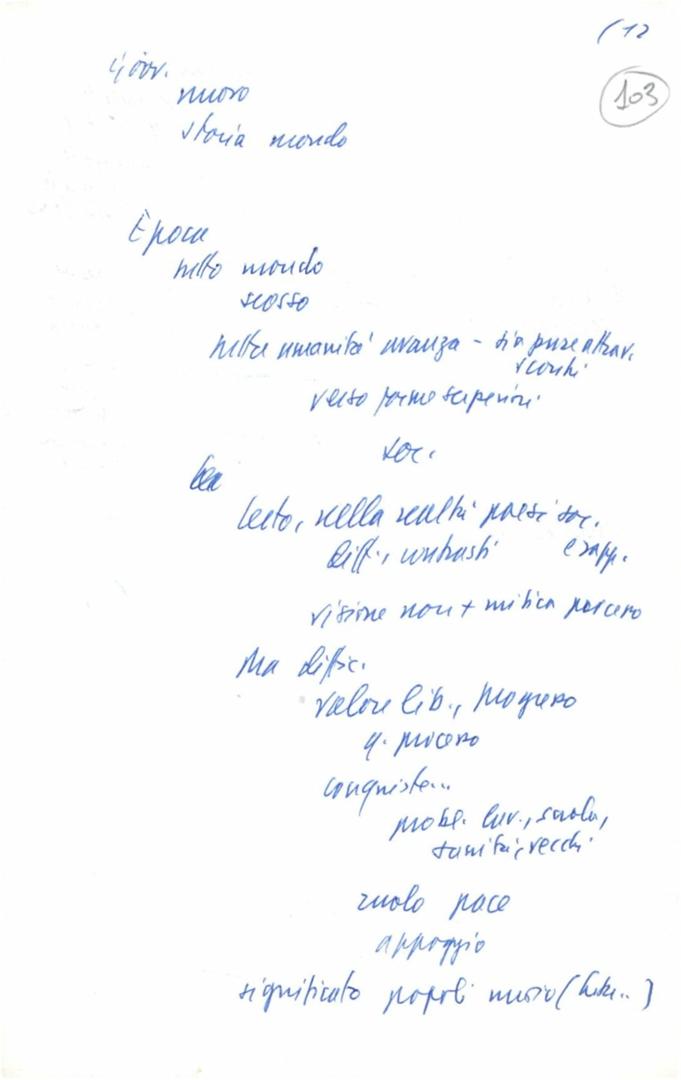 (12
103
giov.
nuovo
storia mondo
Epoca
tutto mondo
scosso
tutta umanità avanza - sia pure attrav.
scontri
verso forme superiori
soc.
Certo, nella realtà paesi soc.
diff., contrasti e rapp.
visione non + mitica processo
Ma diffic.
valore lib., progresso
q. processo
conquiste...
probl. lav., scuola,
sanità, vecchi
ruolo pace
appoggio
significato popoli nuovo (